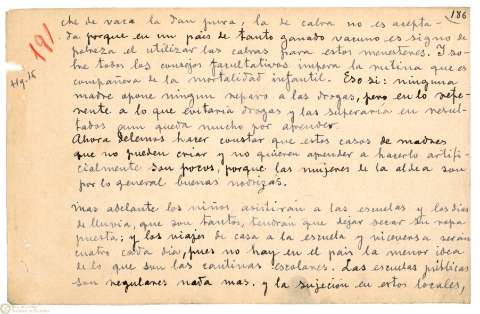 186
191
Hg-15
che de vaca la dan pura, la de cabra no es acepta-
da porque en un país de tanto ganado vacuno es signo de
pobreza el utilizar las cabras para estos menesteres. Y so-
bre todos los consejos facultativos impera la rutina que es
compañera de la mortalidad infantil. Eso si: ninguna
madre opone ningun reparo a las drogas, pero en lo refe-
rente a lo que evitaria drogas y las superaria en resul-
tados aun queda mucho por aprender.
Ahora debemos hacer constar que estos casos de madres
que no pueden criar y no quieren aprender a hacerlo artifi-
cialmente son pocos, porque las mujeres de la aldea son
por lo general buenas nodrizas.
Mas adelante los niños asistirán a las escuelas y los dias
de lluvia, que son tantos, tendrán que dejar secar su ropa
puesta; y los viajes de casa a la escuela y viceversa serán
cuatro cada dia, pues no hay en el pais la menor idea
de lo que son las cantinas escolares. Las escuelas públicas
son regulares nada mas. y la sujeción en estos locales,